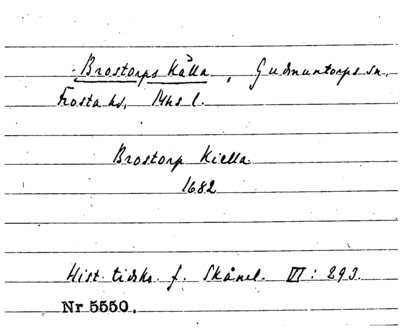 Brostorps Källa, Gudmuntorps sn,
Frosta hd, Mhs l.
Brostorp Kiella
1682
Hist. tidskr. f. Skånel. III: 293.
Nr 5550.